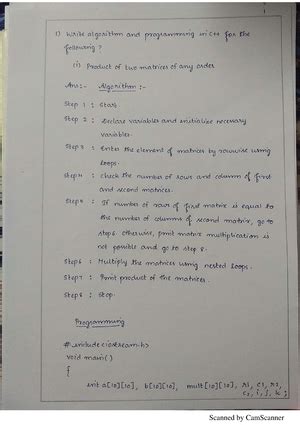 1) Write algorithm and programming in C++ for the
following ?
(i) Product of two matrices of any order
Ans:- Algorithm :-
Step 1 : Start
Step 2 : Declare variables and initialize necessary
variables.
Step 3 : Enter the element of matrices by rowwise using
loops.
Step 4 : Check the number of rows and column of first
and second matrices.
Step 5 : If number of rows of first matrix is equal to
the number of columns of second matrix, go to
step 6. Otherwise, print matrix multiplication is
not possible and go to step 8.
Step 6 : Multiply the matrices using nested loops.
Step 7 : Print product of the matrices.
Step 8 : Stop.
Programming
# include <iostream.h>
void main()
{
int a[10][10], b[10][10], mult[10][10], r1, c1, r2,
c2, i, j, k ;
Scanned by CamScanner